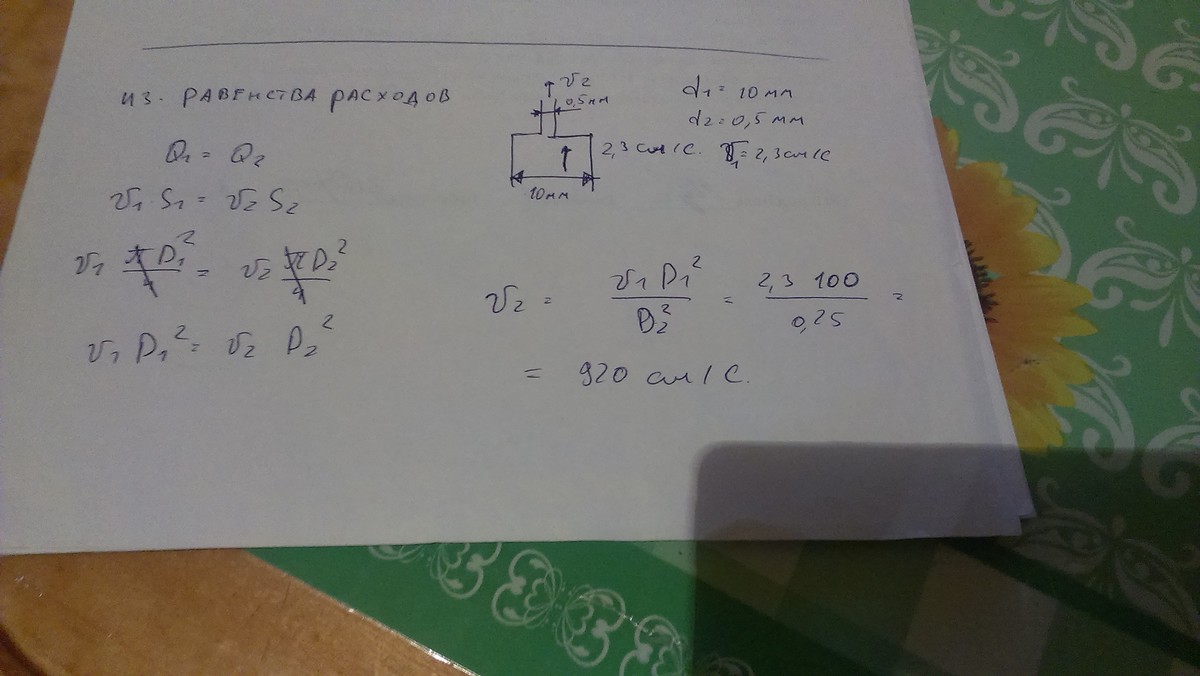 из. РАВЕНСТВА РАСХОДОВ
Q1 = Q2
v1 S1 = v2 S2
v1 πD1²/4 = v2 πD2²/4
v1 D1² = v2 D2²
v2
0,5мм
2,3 см/с.
10мм
d1 = 10 мм
d2 = 0,5 мм
v1 = 2,3 см/с
v2 = v1 D1²/D2² = 2,3 100/0,25 =
= 920 см/с.